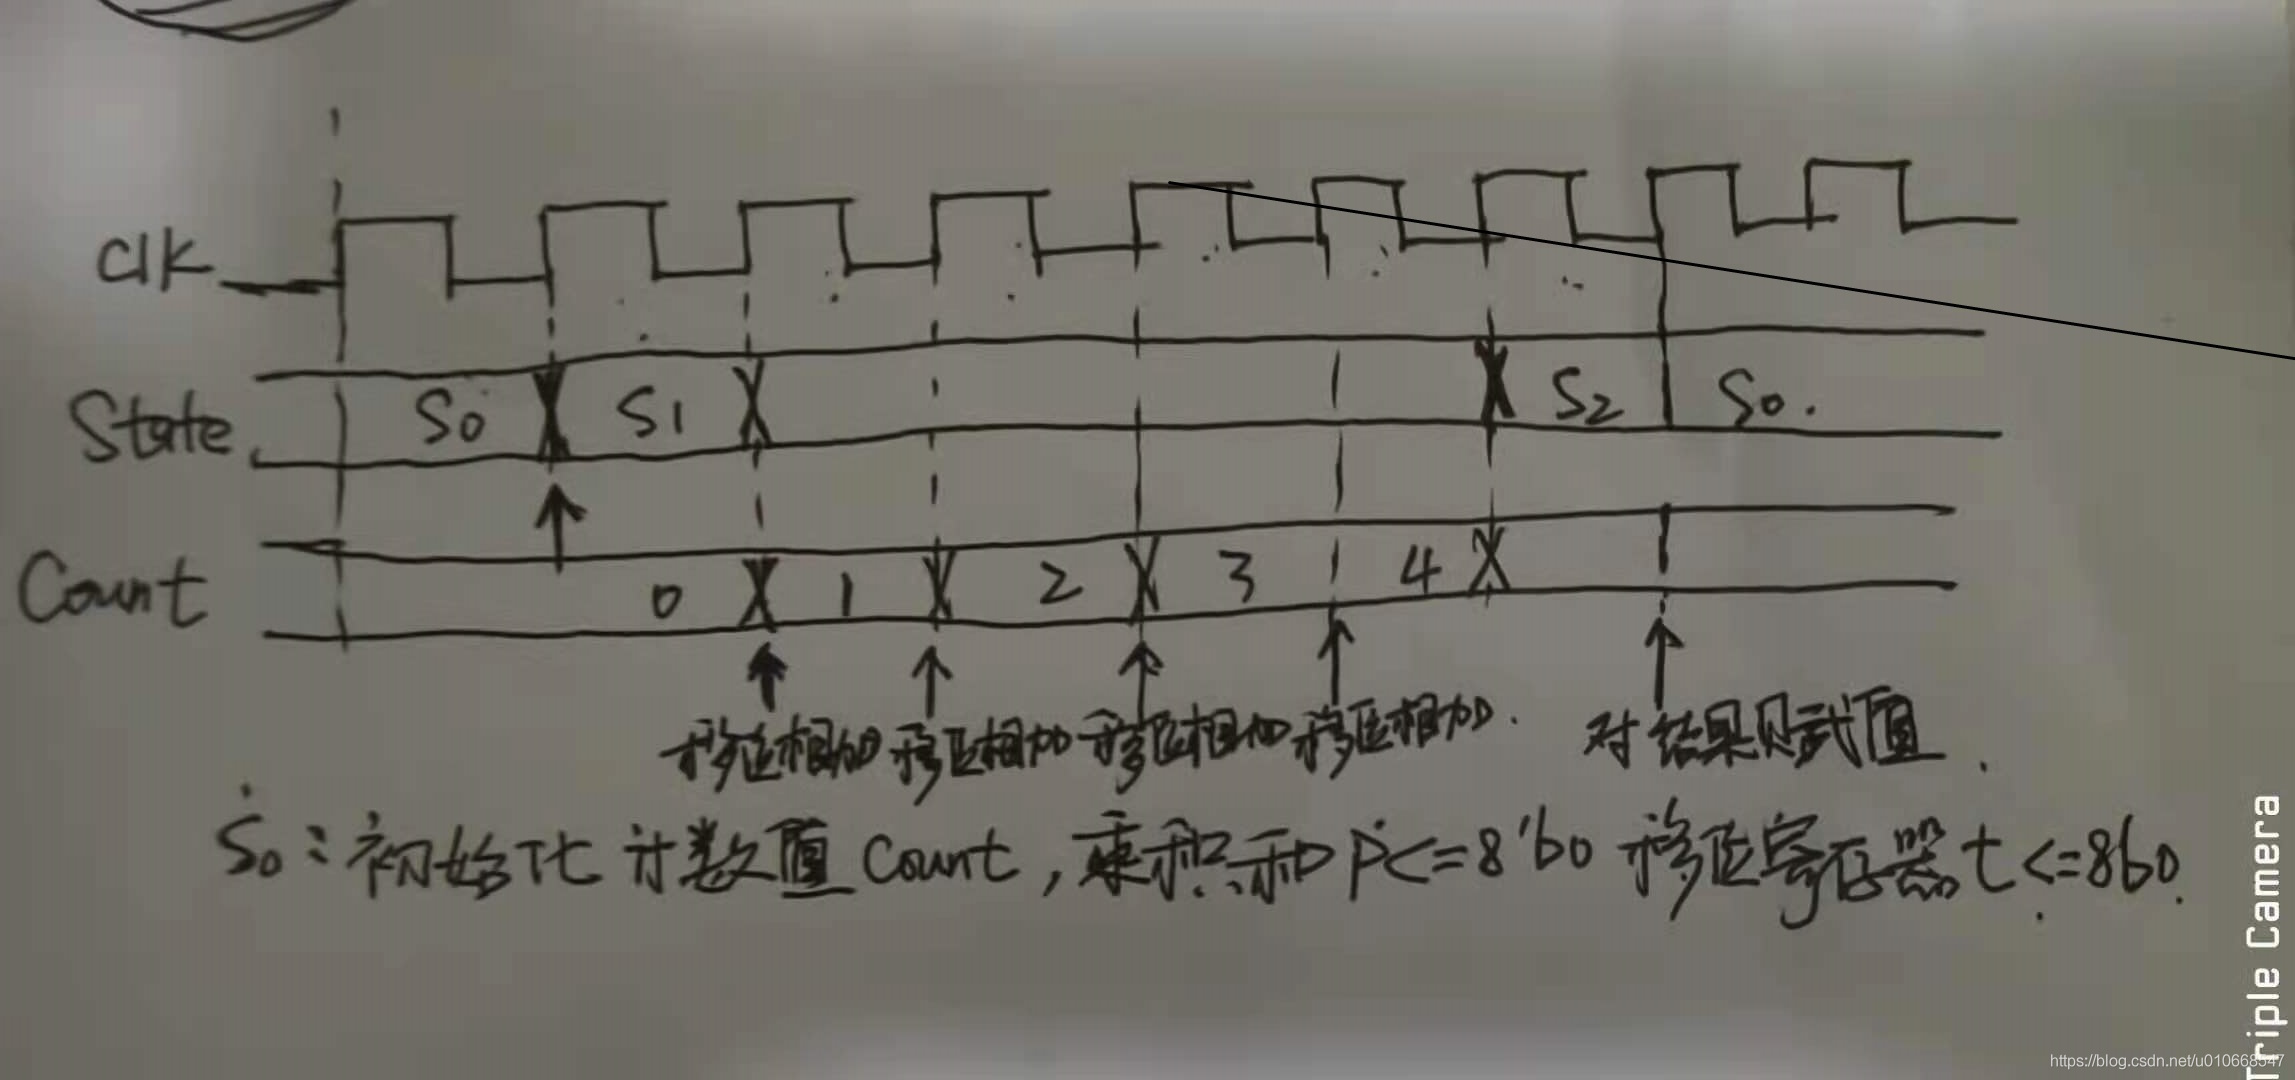 Clk
State S0 S1 S2 S0.
Count 0 1 2 3 4
移位相加 移位相加 移位相加 移位相加. 对结果赋值.
S0:初始化计数值 Count,乘积和 P<=8'b0 移位寄存器 t<=8b0.
Triple Camera
https://blog.csdn.net/u010668547